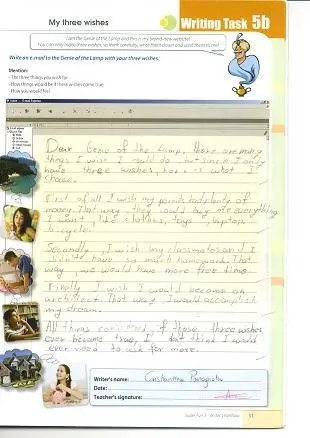 My three wishes
Writing Task 5b
I am the Genie of the Lamp and this is my brand-new website!
You can only make three wishes, so think carefully, write them down and send them to me!
Write an e-mail to the Genie of the Lamp with your three wishes.
Mention:
- The three things you wish for
- How things would be if these wishes came true
- How you would feel
Dear Genie of the Lamp, there are many
things I wish I could do but since I only
have three wishes, here is what I
choose.
First of all I wish my parents had plenty of
money. That way they could buy me everything
I want, like clothes, toys, laptop,
bicycle.
Secondly, I wish my classmates and I
didn't have so much homework. That
way, we would have more free time.
Finally I wish I would become an
architect. That way I would accomplish
my dream.
All things considered, if those three wishes
ever become true, I don't think I would
ever need to ask for more.
Writer's name: Constantina
Date:
Teacher's signature:
11